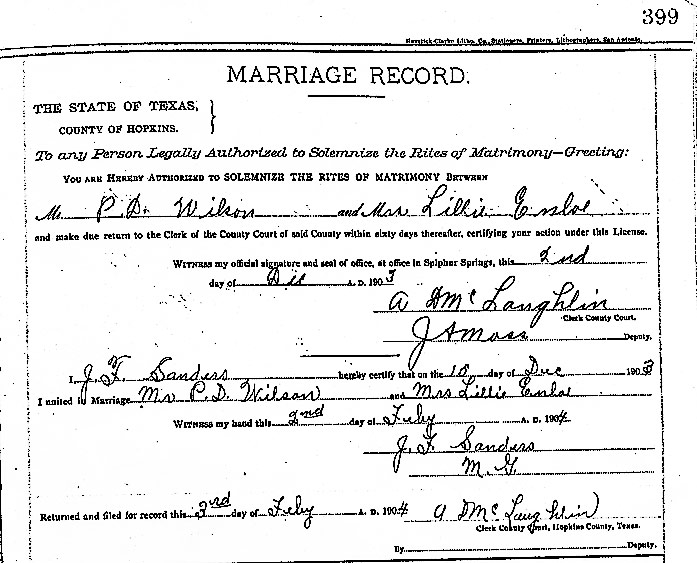 399
Maverick-Clarke Litho. Co., Stationers, Printers, Lithographers, San Antonio.
MARRIAGE RECORD.
THE STATE OF TEXAS,
COUNTY OF HOPKINS.
To any Person Legally Authorized to Solemnize the Rites of Matrimony—Greeting:
YOU ARE HEREBY AUTHORIZED TO SOLEMNIZE THE RITES OF MATRIMONY BETWEEN
Mr P. D. Wilson and Mrs Lillie Ensloe
and make due return to the Clerk of the County Court of said County within sixty days thereafter, certifying your action under this License.
WITNESS my official signature and seal of office, at office in Sulphur Springs, this 2nd
day of Dec A. D. 1903
A D McLaughlin
Clerk County Court.
J A Moss Deputy.
I, J. F. Sanders hereby certify that on the 10 day of Dec 1903
I united in Marriage Mr P. D. Wilson and Mrs Lillie Ensloe
WITNESS my hand this 2nd day of Feby A. D. 1904
J. F. Sanders
M. G
Returned and filed for record this 3rd day of Feby A. D. 1904 A D McLaughlin
Clerk County Court, Hopkins County, Texas.
By Deputy.